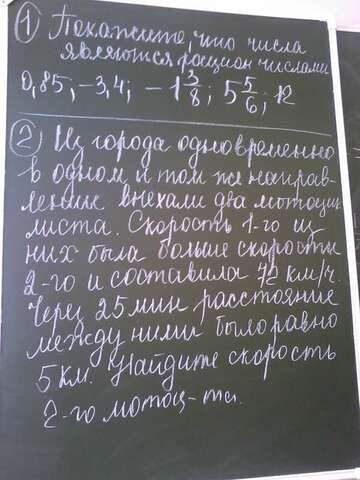 ① Покажите, что числа
являются рацион числами
0,85; -3,4; -1 3/8; 5 5/6; 12
② Из города одновременно
в одном и том же направ-
лении выехали два мотоцик
листа. Скорость 1-го из
них была больше скорости
2-го и составила 72 км/ч.
Через 25 мин расстояние
между ними было равно
5 км. Найдите скорость
2-го мотоц-та.